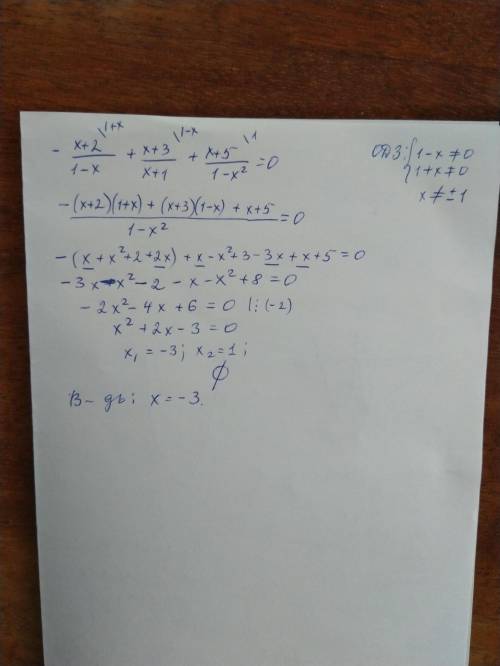 - \frac{x+2}{1-x}^{\1+x} + \frac{x+3}{x+1}^{\1-x} + \frac{x+5}{1-x²}^{\1} = 0
ОДЗ: { 1-x≠0
1+x≠0
x≠±1
\frac{-(x+2)(1+x) + (x+3)(1-x) + x+5}{1-x²} = 0
-(x + x² + 2 + 2x) + x - x² + 3 - 3x + x + 5 = 0
-3x - x² - 2 - x - x² + 8 = 0
-2x² - 4x + 6 = 0 |:(-2)
x² + 2x - 3 = 0
x₁ = -3; x₂ = 1;
∅
В-дь: x = -3.